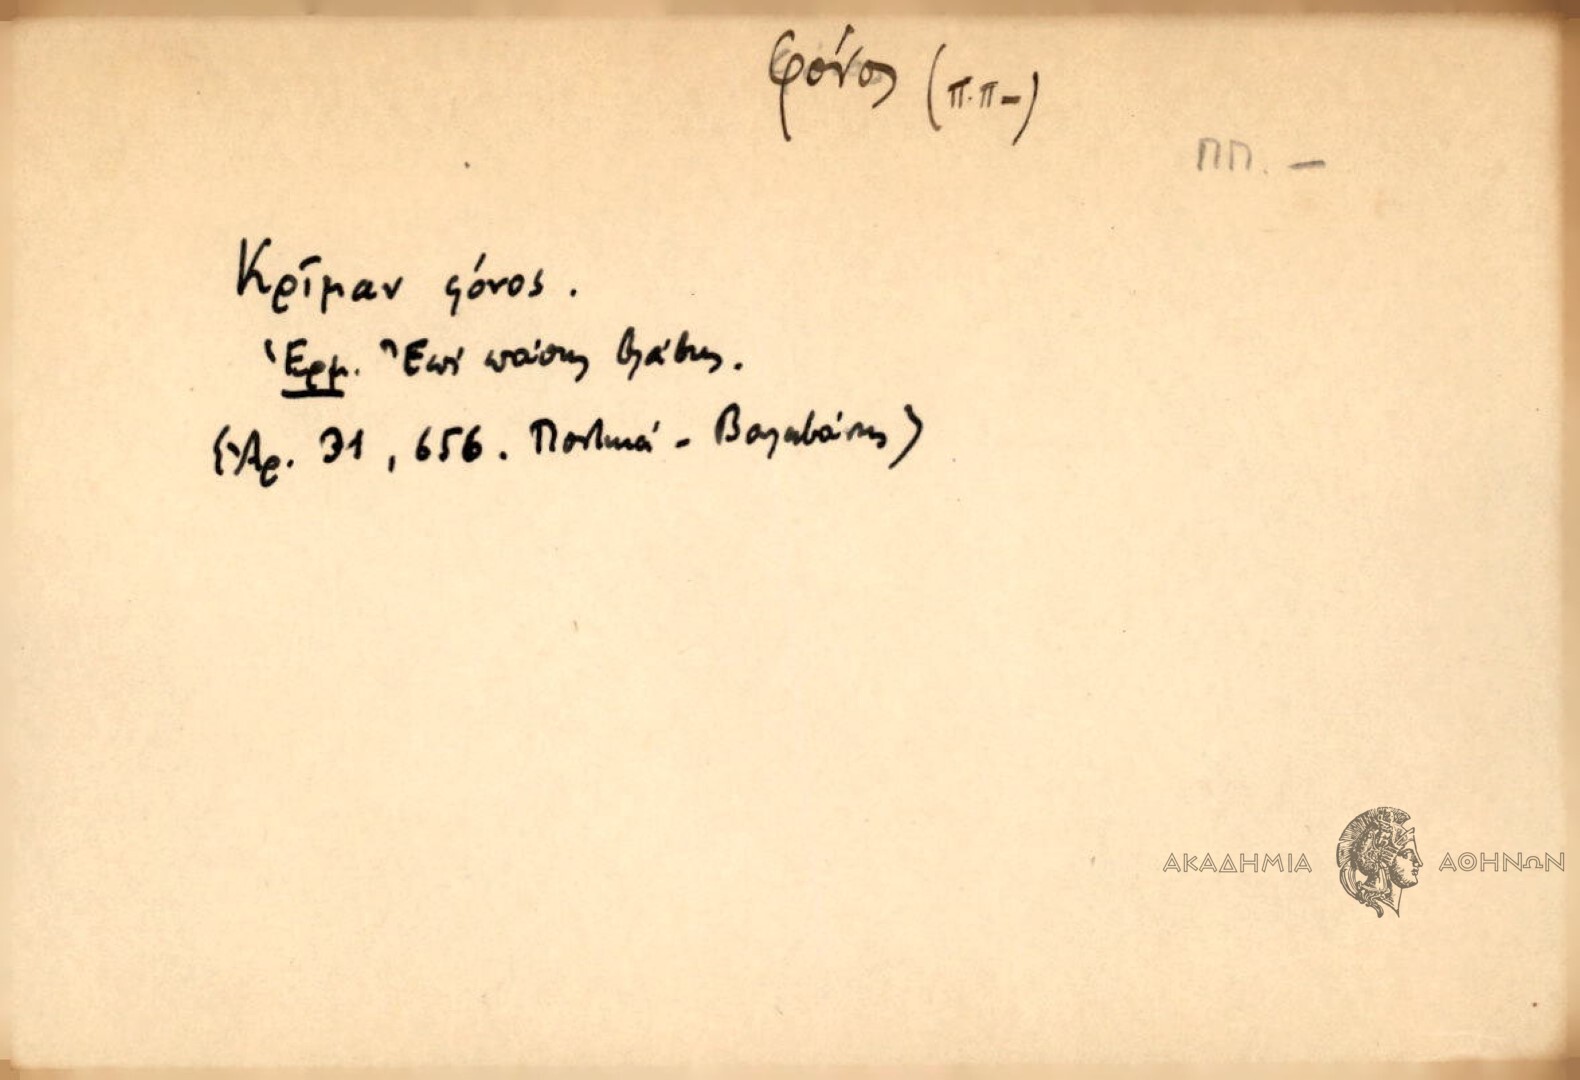 φόνος (π.π-)
ΠΠ. -
Κρῖμαν φόνος.
Ἑρμ. Ἐπὶ πάσης βλάβης.
(Ἀρ. 31, 656. Ποντικά - Βαλαβάνης)
ΑΚΑΔΗΜΙΑ ΑΘΗΝΩΝ